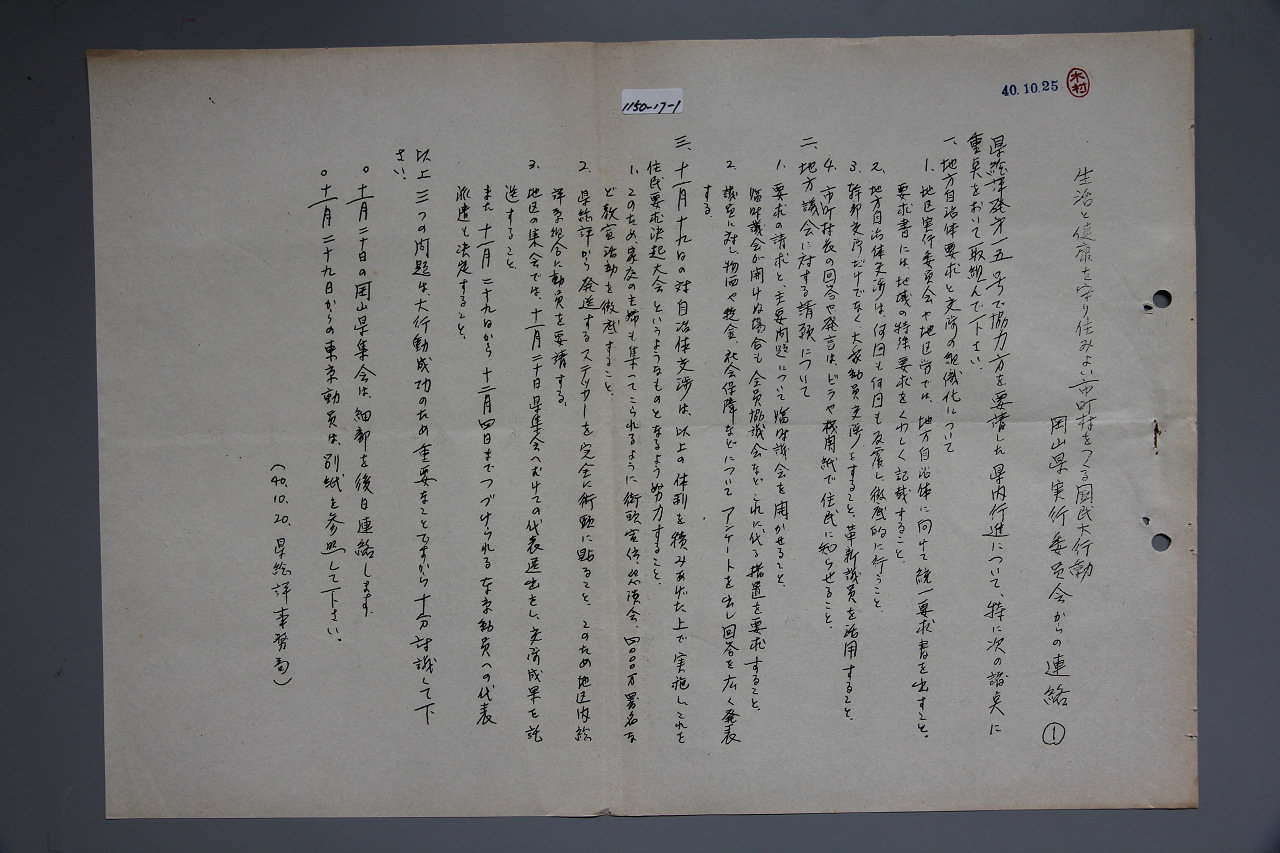 40.10.25
木村
1150-17-1
生活と健康を守り住みよい市町村をつくる国民大行動
岡山県実行委員会からの連絡 ①
県総評発第一五号で協力方を要請した県内行進について、特に次の諸点に
重点をおいて取組んで下さい。
一、地方自治体要求と交渉の組織化について
1. 地区実行委員会や地区労では、地方自治体に向けて統一要求書を出すこと。
要求書には、地域の特殊要求をくわしく記載すること。
2. 地方自治体交渉は、何回も何回も反覆し、徹底的に行うこと。
3. 幹部交渉だけでなく、大衆動員交渉とすること、革新議員を活用すること。
4. 市町村長の回答や発言は、ビラや機関紙で住民に知らせること。
二、地方議会に対する請願について
1. 要求の請求と、主要問題について臨時議会を開かせること。
臨時議会が開けぬ場合も全員協議会など、これに代る措置を要求すること。
2. 議員に対し、物価や税金、社会保障などについてアンケートを出し回答を広く発表
する
三、十一月十九日の対自治体交渉は、以上の体制を積みあげた上で実施し、これを
住民要求決起大会というようなものとなるよう努力すること。
1. このため、家庭の主婦も集ってこられるように街頭宣伝、懇談会、四〇〇〇万署名な
ど教宣活動を徹底すること。
2. 県総評から発送するステッカーを完全に街頭に貼ること、このため地区内総
評系組合に動員を要請する。
3. 地区の集会では、十一月二十日県集会へむけての代表選出をし、交渉成果を託
送すること。
また十一月二十九日から十二月四日までつづけられる東京動員への代表
派遣を決定すること。
以上三つの問題は、大行動成功のため重要なことですから十分討議して下
さい。
○十一月二十日の岡山県集会は、細部を後日連絡します。
○十一月二十九日からの東京動員は、別紙を参照して下さい。
(40.10.20. 県総評事務局)